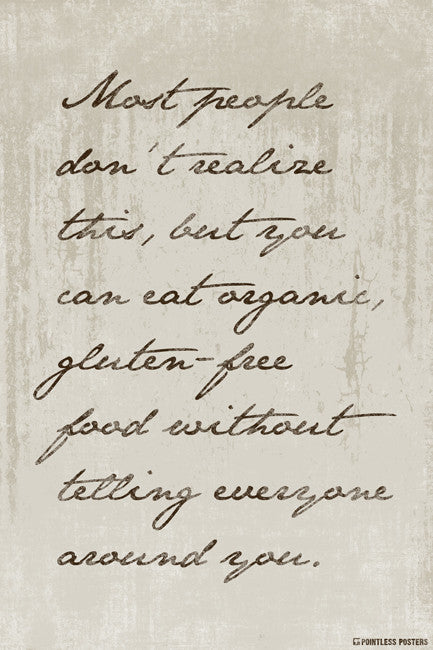 Most people
don't realize
this, but you
can eat organic,
gluten-free
food without
telling everyone
around you.
POINTLESS POSTERS